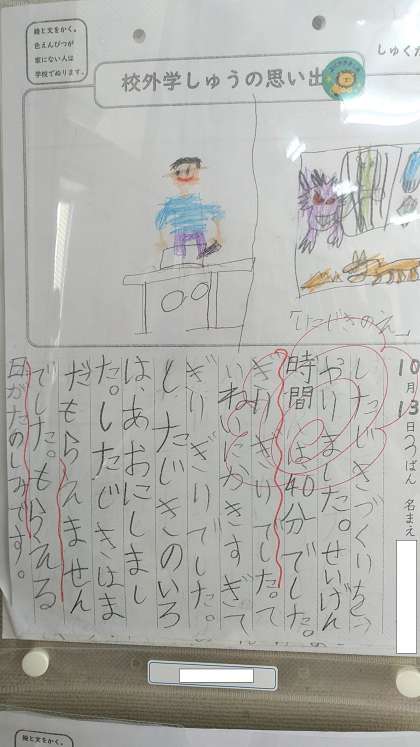 絵と文をかく。
色えんぴつが
家にない人は
学校でぬります。
校外学しゅうの思い出
しゅくだ
「したじきのえ」
10月13日
ばん 名まえ
したじきづくりを
やりました。せいげん
時間は40分でした。
ぎりぎりでした。て
いねいにかきすぎて
ぎりぎりでした。
したじきのいろ
は、あおにしまし
た。したじきはま
だもらえません
でした。もらえる
日がたのしみです。
絵と文をかく。